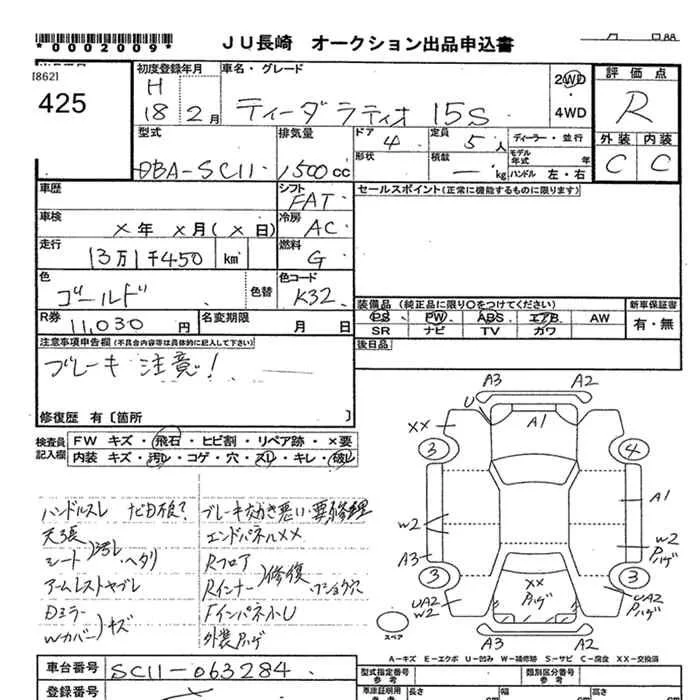 *0002009*
JU長崎 オークション出品申込書
月 日
[862]
425
初度登録年月
H
18 2月
車名・グレード
ティーダラティオ 15S
2WD
4WD
評価点
R
外装 内装
C C
型式
DBA-SC11
排気量
1500cc
ドア
4
定員
5人
形状
積載
kg
ディーラー・並行
モデル
年式 年
ハンドル 左・右
車歴
シフト
FAT
セールスポイント(正常に機能するものに限ります)
車検
×年 ×月(×日)
冷房
AC
走行
13万1千450 km
燃料
G
色
ゴールド
色替
色コード
K32
装備品 (純正品に限り○をつけてください)
新車保証書
PS PW ABS エアB AW
SR ナビ TV カワ
有・無
R券
11,030円
名変期限
月 日
後日品
注意事項申告欄 (不具合内容等は具体的に記入して下さい)
ブレーキ注意!
修復歴 有〔箇所 〕
検査員
記入欄
FW キズ・飛石・ヒビ割・リペア跡・×要
内装 キズ・汚レ・コゲ・穴・スレ・キレ・破レ
ハンドルスレ
天張
シート)汚レ・ヘタリ
アームレストヤブレ
Dミラー
Wカバー)キズ
ブレーキ効き悪い・要修理
エンドパネルXX
Rフロア
Rインナー)修復
外装
A3 A2
U
A1
XX
3 4
A1
W2
W2
A3
3 3
XX
UA2
W2
UA2
W2
A3 A2
スペア
A-キズ E-エクボ U-凹み W-補修跡 S-サビ C-腐食 XX-交換済
車台番号
SC11-063284
登録番号
型式指定番号
参考
類別区分番号
参考
車庫証明用
長さ 幅 高さ